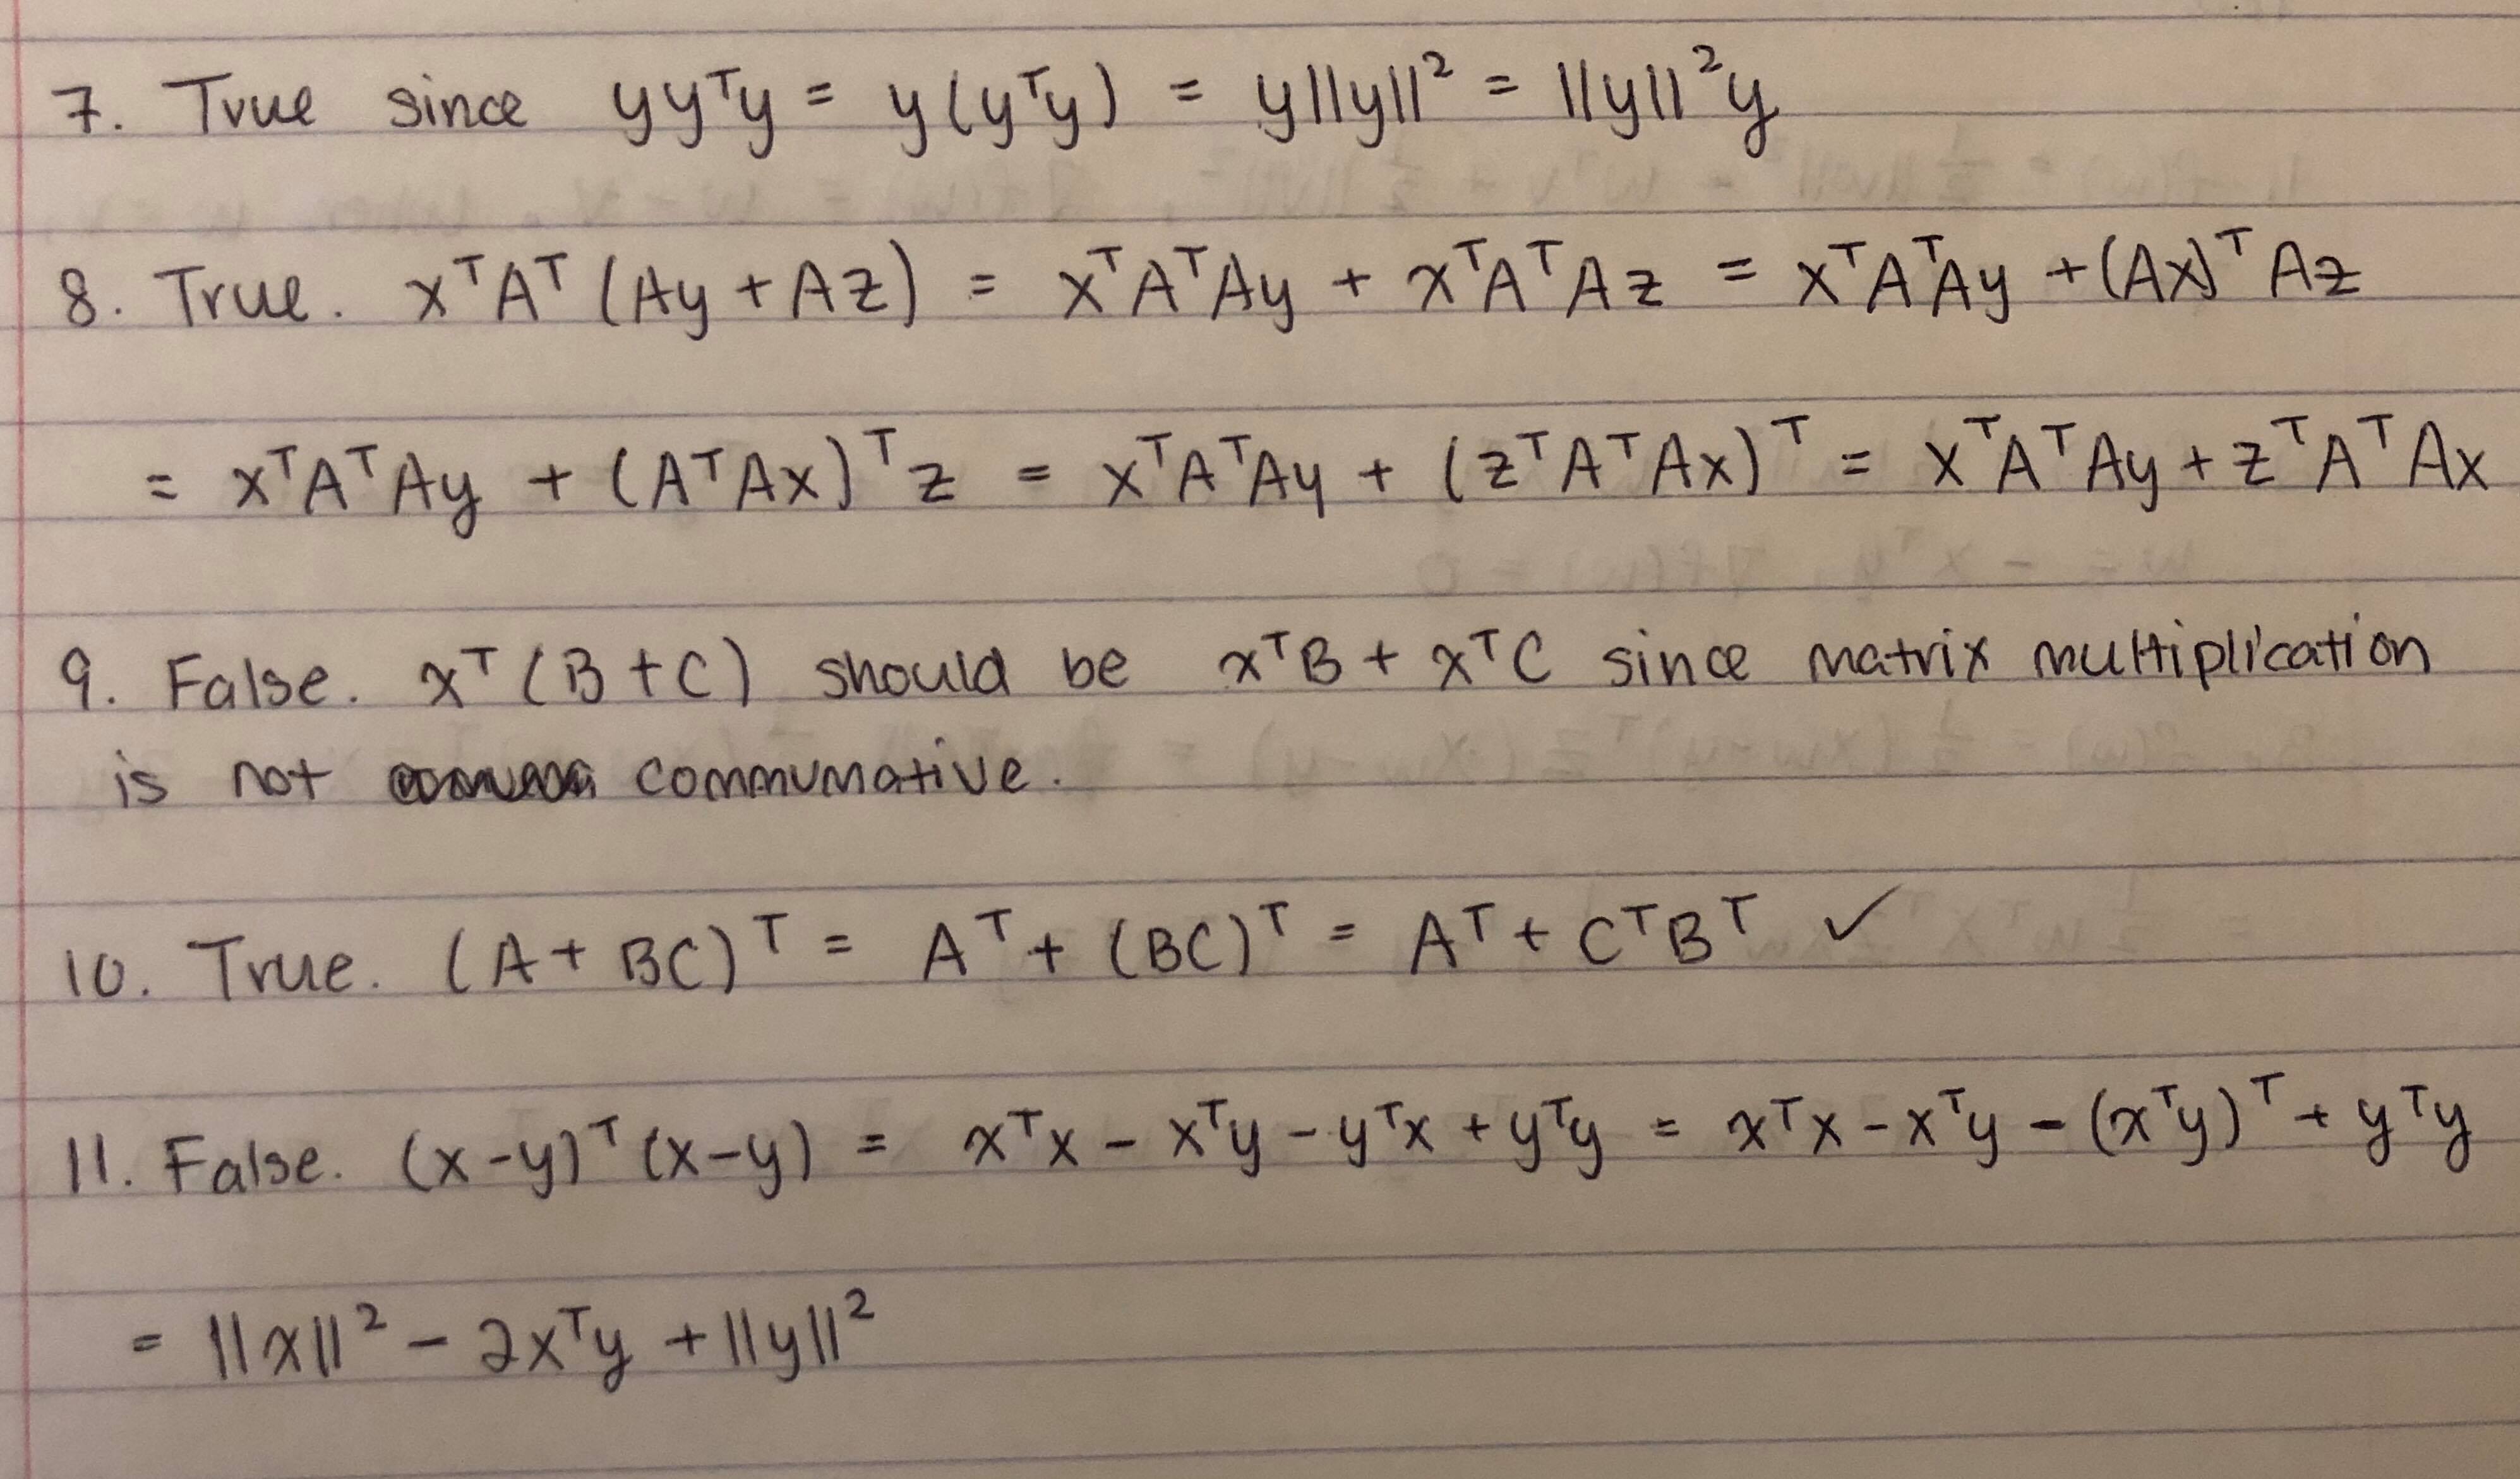 7. True since yyᵀy = y(yᵀy) = y||y||² = ||y||²y
8. True. xᵀAᵀ(Ay + Az) = xᵀAᵀAy + xᵀAᵀAz = xᵀAᵀAy + (Ax)ᵀAz
= xᵀAᵀAy + (AᵀAx)ᵀz = xᵀAᵀAy + (zᵀAᵀAx)ᵀ = xᵀAᵀAy + zᵀAᵀAx
9. False. xᵀ(B + C) should be xᵀB + xᵀC since matrix multiplication
is not commumative.
10. True. (A + BC)ᵀ = Aᵀ + (BC)ᵀ = Aᵀ + CᵀBᵀ ✓
11. False. (x-y)ᵀ(x-y) = xᵀx - xᵀy - yᵀx + yᵀy = xᵀx - xᵀy - (xᵀy)ᵀ + yᵀy
= ||x||² - 2xᵀy + ||y||²